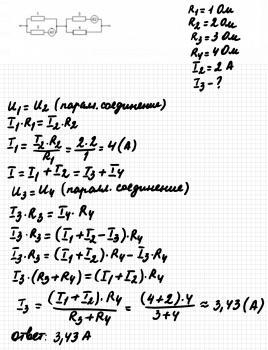 R₁ = 1 Ом
R₂ = 2 Ом
R₃ = 3 Ом
R₄ = 4 Ом
I₂ = 2 А
I₃ - ?
U₁ = U₂ (паралл. соединение)
I₁·R₁ = I₂·R₂
I₁ = I₂·R₂/R₁ = 2·2/1 = 4 (А)
I = I₁ + I₂ = I₃ + I₄
U₃ = U₄ (паралл. соединение)
I₃·R₃ = I₄·R₄
I₃·R₃ = (I₁+I₂-I₃)·R₄
I₃·R₃ = (I₁+I₂)·R₄ - I₃·R₄
I₃·(R₃+R₄) = (I₁+I₂)·R₄
I₃ = (I₁+I₂)·R₄/(R₃+R₄) = (4+2)·4/(3+4) ≈ 3,43 (А)
Ответ: 3,43 А